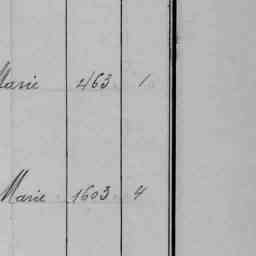 Marie 463 1
Marie 1603 4